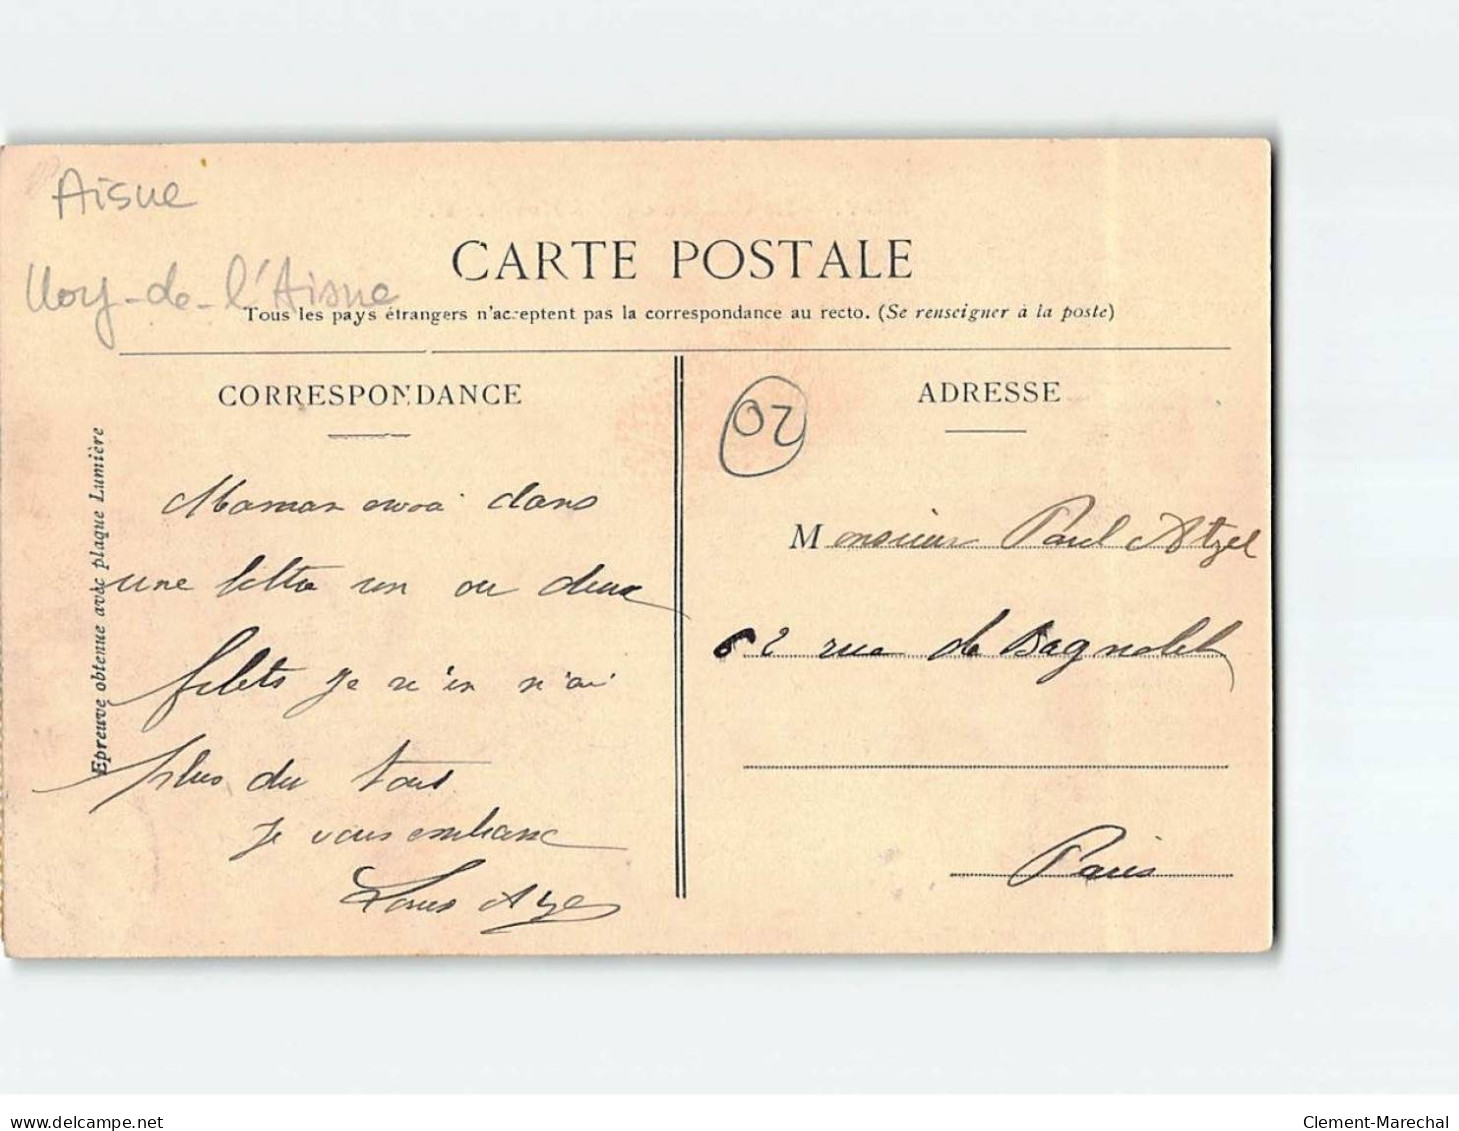 Aisne
Noy-de-l'Aisne
CARTE POSTALE
Tous les pays étrangers n'acceptent pas la correspondance au recto. (Se renseigner à la poste)
CORRESPONDANCE
ADRESSE
02
Epreuve obtenue avec plaque Lumière
Maman dans
une lettre un ou deux
filets je n'en n'ai
plus du tout
Je vous embrasse
Louis
Monsieur Paul Atzel
62 rue de Bagnolet
Paris
www.delcampe.net
Clement-Marechal